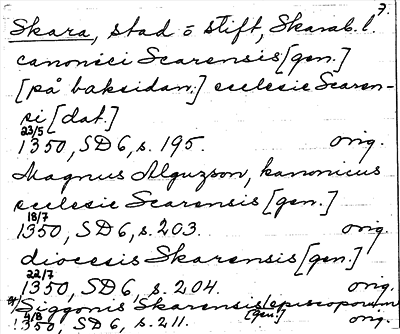 7.
Skara, stad o stift, Skarab.l.
canonici Scarensis [gen.]
[på baksidan:] ecclesie Scaren-
si [dat.]
23/5
1350, SD 6, s. 195. orig.
Magnus Alguzson, kanonicus
ecclesie Scarensis [gen.]
18/7
1350, SD 6, s. 203. orig.
diocesis Skarensis [gen.]
22/7
1350, SD 6, s. 204. orig.
Siggonis Skarensis episcoporum
[gen.]
1350, SD 6, s. 211. orig.